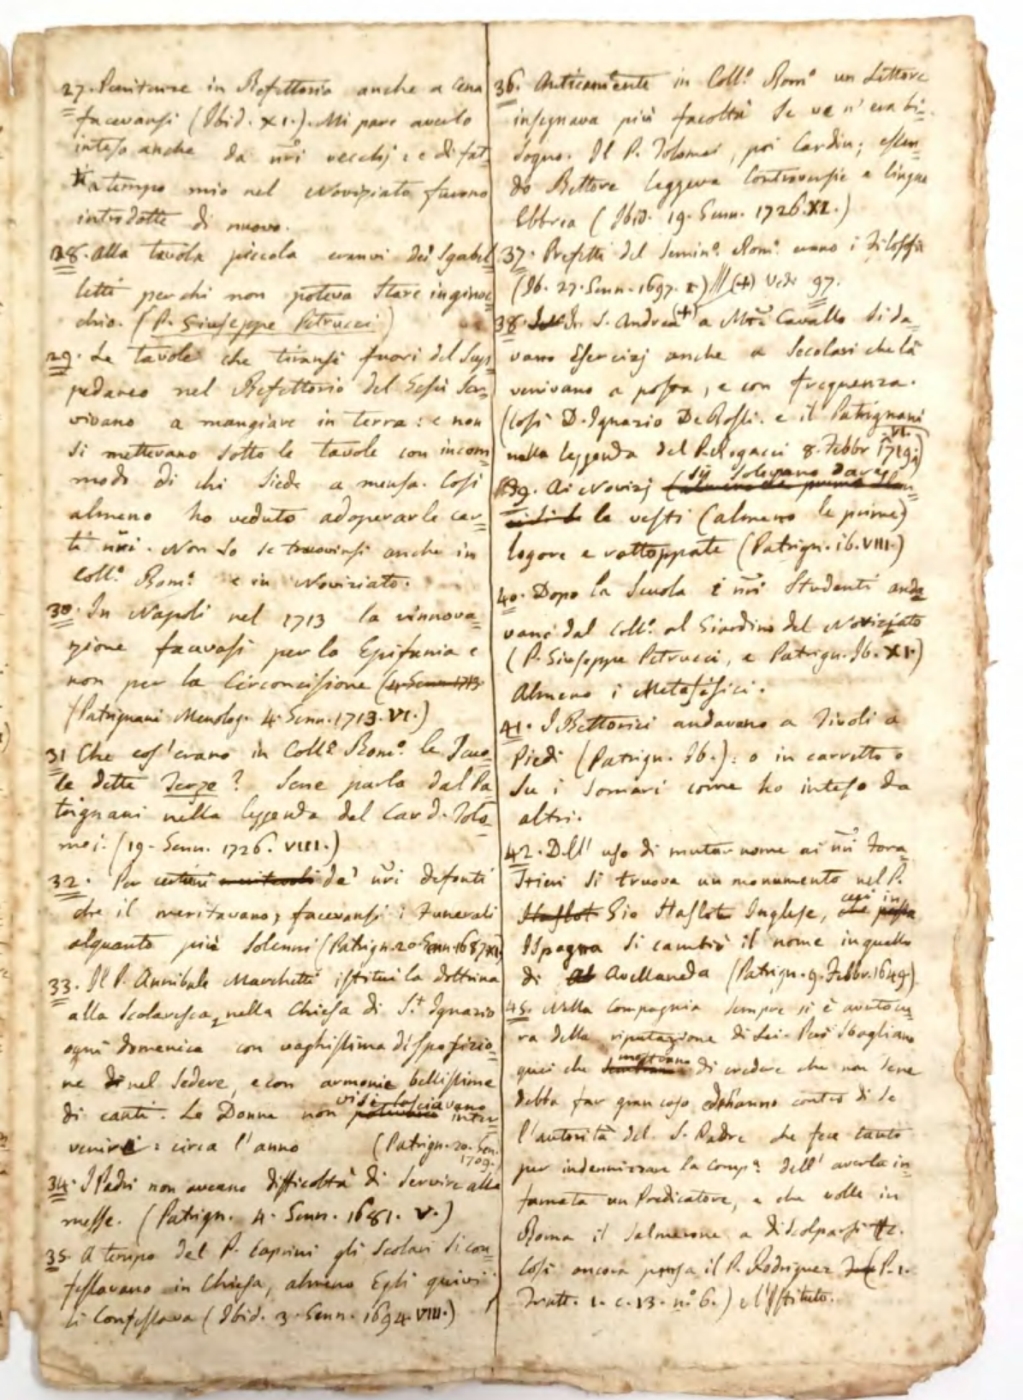 27. Penitenze in Refettorio anche a Cena
facevansi (Ibid. XI.). Mi pare averlo
inteso anche da nr̃i vecchj: e di fat
a tempo mio nel Noviziato furono
introdotte di nuovo.
28. Alla tavola piccola eranvi dei Sgabel
letti per chi non poteva stare in ginoc
chio. (P. Giuseppe Petrucci)
29. Le tavole che tiransi fuori del Sup
pedaneo nel Refettorio del Gesù ser
vivano a mangiare in terra: e non
si mettevano sotto le tavole con incom
modo di chi siede a mensa. Così
almeno ho veduto adoperarle cer
ti nr̃i. Non so se truovinsi anche in
Coll.º Rom.º e in Noviziato.
30. In Napoli nel 1713 la rinnova
zione facevasi per lo Epifania e
non per la Circoncisione (4. Genn. 1713
(Patrignani Menolog. 4. Genn. 1713. VI.)
31 Che cos'erano in Coll.º Rom.º le Scuo
le dette Terze? Sene parla dal Pa
trignani nella leggenda del Card. Tolo
mei. (19. Genn. 1726. VIII.)
32. Per de' nr̃i defonti
che il meritavano, facevansi i Funerali
alquanto più solenni (Patrign. 20. Genn. 1687. XI.)
33. Il P. Annibale Marchetti istituì la dottrina
alla Scolaresca, nella Chiesa di S.t Ignazio
ogni domenica con vaghissima disposizio
ne nel sedere, e con armonie bellissime
di canti. Le Donne non vi si lasciavano inter
venire: circa l'anno (Patrign. 20. Gen.
1709.)
34. I Padri non aveano difficoltà di servire alla
messe. (Patrign. 4. Genn. 1681. V.)
35. A tempo del P. Caprini gli Scolari si con
fessavano in Chiesa, almeno Egli quivi
li Confessava (Ibid. 3. Genn. 1694. VIII.)
36. Anticamente in Coll.º Rom.º un Lettore
insegnava più facoltà se ve n'era bi
sogno. Il P. Tolomei, poi Cardin; essen
do Rettore leggeva Controversie e lingua
Ebbrea (Ibid. 19. Genn. 1726. XI.)
37. Prefetti del Semin.º Rom.º erano i Filosofi
(Ib. 27. Genn. 1697. X) // (+) Vedi 97.
38. In S. Andrea (+) a Mte Cavallo si da
vano Esercizj anche a Secolari che là
venivano a posta, e con frequenza.
(Così D. Ignazio De Rossi. e il Patrignani
nella leggenda del P. Rogacci 8. Febbr. 1719. VI.)
39. Ai Novizj si solevano dare
le vesti (almeno le prime)
logore e rattoppate (Patrign. ib. VIII.)
40. Dopo la Scuola i nr̃i Studenti anda
vano dal Coll.º al Giardino del Noviziato
(P. Giuseppe Petrucci, e Patrign. Ib. XI.)
Almeno i Metafisici.
41. I Rettorici andavano a Tivoli a
Piedi (Patrign. Ib.): o in carretto o
su i Somari come ho inteso da
altri.
42. Dell' uso di mutar nome ai nr̃i Fora
stieri si truova un monumento nel P.
Haslot Gio Haslot Inglese, cui in
Ispagna si cambiò il nome in quello
di Avellaneda (Patrign. 9. Febbr. 1649)
43. Nella Compagnia sempre si è avuto cu
ra della riputazione di Lei. Però sbagliano
quei che mostrano di credere che non sene
debba far gran caso, ed hanno contro di se
l'autorità del S. Padre che fea tanto
per indennizzare la Comp.ª dell' averla in
famata un Predicatore, e che volle in
Roma il Salmerone a discolparsi &c.
Così ancora pensa il P. Rodriguez (P. 1.
Tratt. 1. c. 13. n.º 6.) e l'Istituto.